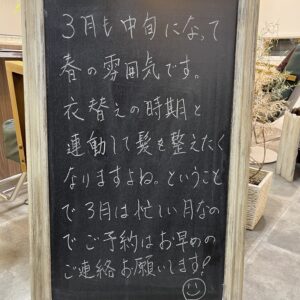 3月も中旬になって
春の雰囲気です。
衣替えの時期と
連動して髪を整えたく
なりますよね。ということ
で3月は忙しい月なの
でご予約はお早めの
ご連絡お願いします!